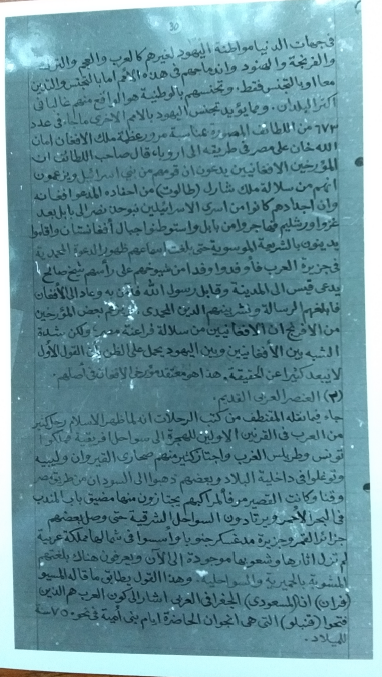 في جهات الدنيا مواطنة اليهود لغيرهم كالعرب والعجم والترك
والفرنجة والهنود واندماجهم في هذه الأمم اما بالتجنس والدين
معا او بالتجنس فقط. وتجنسهم بالوطنية هو الواقع منهم غالبا في
أكثر البلدان. ومما يؤيد تجنس اليهود بالأمم الأخرى ما جاء في عدد
٦٧٣ من اللطائف المصورة بمناسبة مرور عظمة ملك الافغان امان
الله خان على مصر في طريقه الى اروبا، قال صاحب اللطائف ان
المؤرخين الافغانيين يدعون ان قومهم من بني اسرائيل ويزعمون
انهم من سلالة ملك شارل (طالوت) من احفاده المدعو افغانه
وان أجدادهم كانوا من اسرى الاسرائيليين نبوخذ نصر الى بابل بعد
غزو اورشليم فهاجروا من بابل واستوطنوا جبال أفغانستان واقاموا
يدينون بالشريعة الموسوية حتى بلغ اسماعهم ظهور الدعوة المحمدية
في جزيرة العرب فأوفدوا وفدا من شيوخهم على رأسهم شيخ صالح
يدعى قيس الى المدينة وقابل رسول الله فآمن به وعاد الى الأفغان
فابلغهم الرسالة ونشر بينهم الدين المحمدي ويزعم بعض المؤرخين
من الافرنج ان الافغانيين من سلالة فراعنة مصر ولكن شدة
الشبه بين الأفغانيين وبين اليهود يحمل على الظن بأن القول الأول
لا يبعد كثيرا عن الحقيقة. هذا هو معتقد مؤرخي الافغان في أصلهم.
(٣) العنصر العربي القديم.
جاء فيما نقله المقتطف من كتب الرحلات انه لما ظهر الاسلام رحل كثير
من العرب في القرنين الاولين للهجرة الى سواحل افريقية فملكوا
تونس وطرابلس الغرب واجتاز كثير منهم صحارى القيروان وليبيه
وتوغلوا في داخلية البلاد وبعضهم ذهبوا الى السودان من طريق مصر
وقنا وكانت القصير مرفأ لمراكبهم يجتازون منها مضيق باب المندب
في البحر الأحمر ويرتادون السواحل الشرقية حتى وصل بعضهم
جزائر القمر وجزيرة مدغسكر جنوبا واسسوا في شمالها مملكة عربية
لم تزل اثارها وشعوبها موجودة الى الآن ويعرفون هناك بلغتهم
المشوبة بالحميرية والسواحلية. وهذا القول يطابق ما قاله المسيو
(فران) ان (المسعودي) الجغرافي العربي اشار الى كون العرب هم الذين
فتحوا (قنبلو) التي هي انجوان الحاضرة ايام بني أمية في نحو ٧٥٠ سنة
للميلاد.